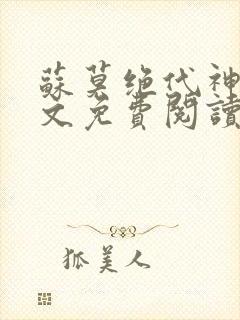 蘇莫绝代神
文免費閱讀
狐美人